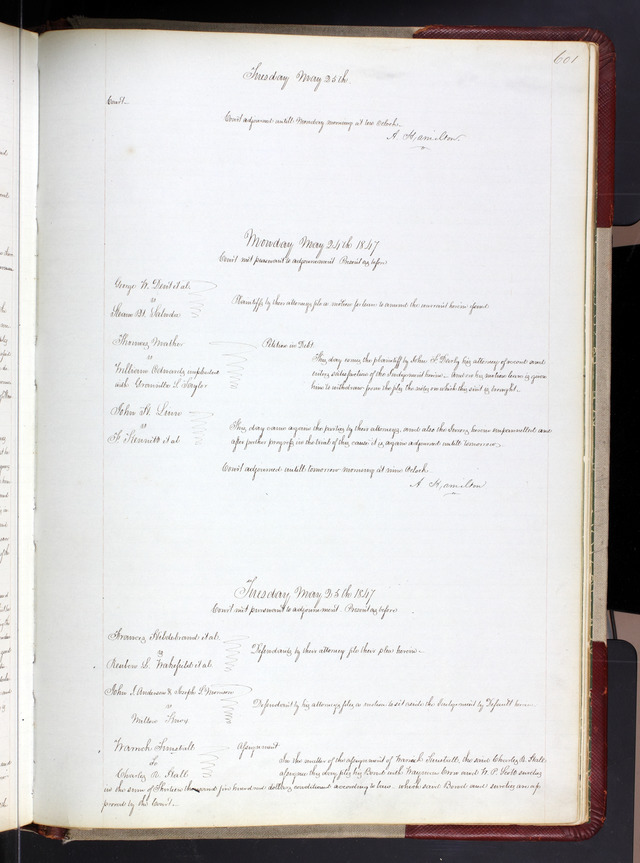 601
Tuesday May 25th
Court.
Court adjourned untill Monday morning at ten Oclock.
A Hamilton
Monday May 24th 1847
Court met pursuant to adjournment Present as before
George W. et al
vs
Plaintiffs by their attorney file a motion for leave to amend the warrant herein filed
Thomas Mather
vs
William Edwards impleaded
with Granville S Taylor
Petition in Debt.
This day came the plaintiff by John F Darby his attorney of record and
enters satisfaction of the Judgement herein. And on his motion leave is given
him to withdraw from the file the note on which this suit is brought.
John H. Linn
vs
F Kennett et al
This day came again the parties by their attorneys, and also the Jurors herein empannelled and
after further progress in the trial of this cause it is again adjourned untill tomorrow.
Court adjourned untill tomorrow morning at nine Oclock.
A Hamilton
Tuesday May 25th 1847
Court met pursuant to adjournment. Present as before
Francis Hildebrand et al.
vs
Reuben S. Wakefield et al
Defendants by their attorney file their plea herein.
John J Anderson & Joseph S Morrison
vs
Knox
Defendant by his attorney files a motion to set aside the Judgement by Default herein.
Warrick Tunstall
to
Charles A Hall
Assignment
In the matter of the assignment of Warrick Tunstall, the said Charles A. Hall
assignee this day files his Bond with Wayman Crow and W. P. Scott sureties
in the sum of thousand five hundred dollars conditioned according to law. which said Bond and sureties are ap
proved by the Court.